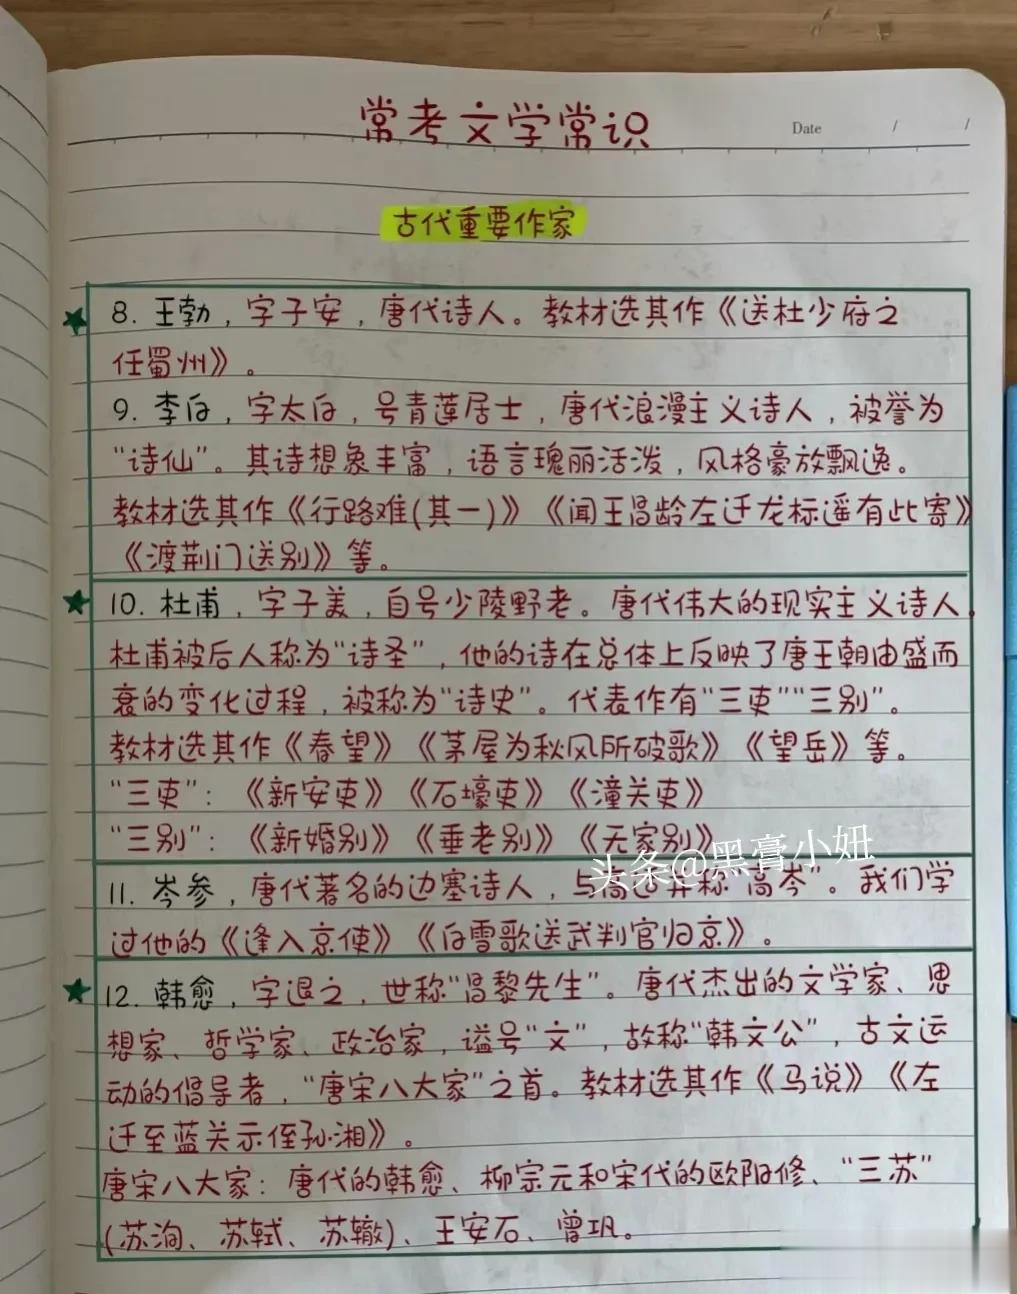 常考文学常识
Date / /
古代重要作家
8. 王勃，字子安，唐代诗人。教材选其作《送杜少府之
任蜀州》。
9. 李白，字太白，号青莲居士，唐代浪漫主义诗人，被誉为
“诗仙”。其诗想象丰富，语言瑰丽活泼，风格豪放飘逸。
教材选其作《行路难(其一)》《闻王昌龄左迁龙标遥有此寄》
《渡荆门送别》等。
10. 杜甫，字子美，自号少陵野老。唐代伟大的现实主义诗人，
杜甫被后人称为“诗圣”，他的诗在总体上反映了唐王朝由盛而
衰的变化过程，被称为“诗史”。代表作有“三吏”“三别”。
教材选其作《春望》《茅屋为秋风所破歌》《望岳》等。
“三吏”：《新安吏》《石壕吏》《潼关吏》
“三别”：《新婚别》《垂老别》《无家别》
头条@黑膏小妞
11. 岑参，唐代著名的边塞诗人，与高适并称“高岑”。我们学
过他的《逢入京使》《白雪歌送武判官归京》。
12. 韩愈，字退之，世称“昌黎先生”。唐代杰出的文学家、思
想家、哲学家、政治家，谥号“文”，故称“韩文公”，古文运
动的倡导者，“唐宋八大家”之首。教材选其作《马说》《左
迁至蓝关示侄孙湘》。
唐宋八大家：唐代的韩愈、柳宗元和宋代的欧阳修、“三苏”
(苏洵、苏轼、苏辙)、王安石、曾巩。